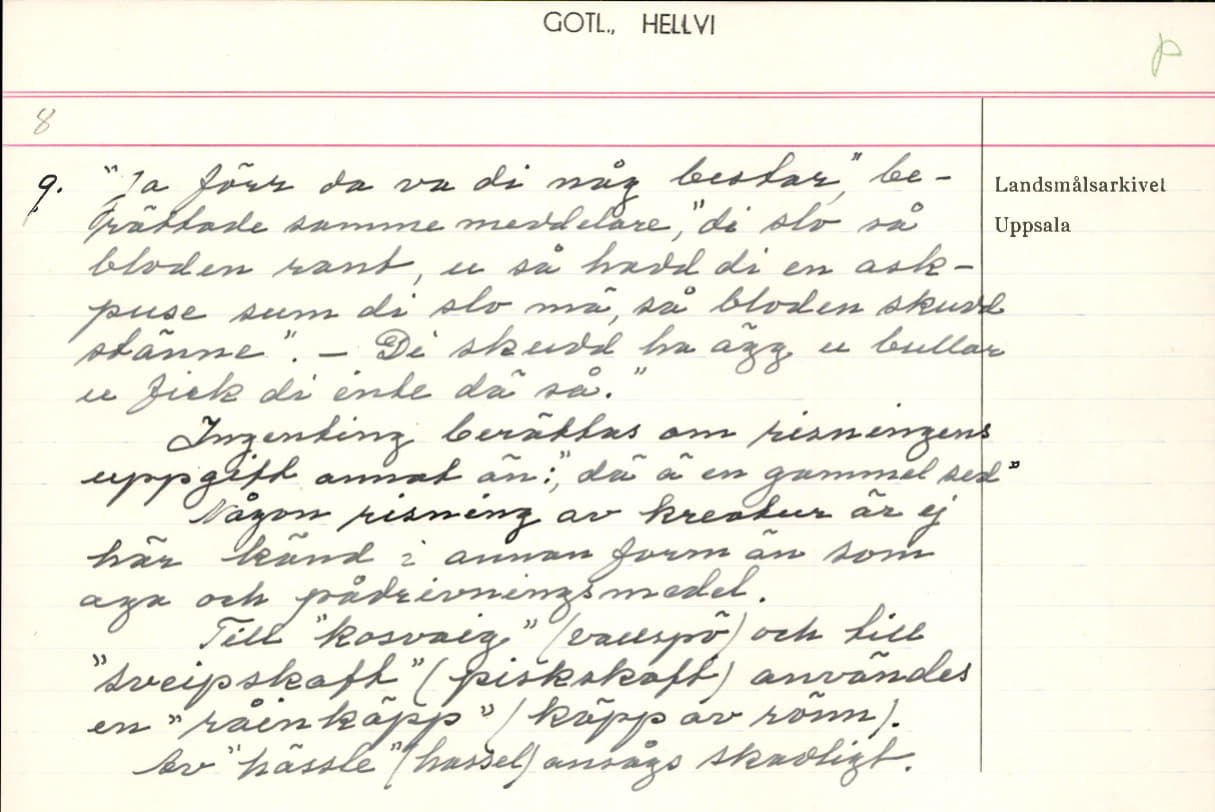 GOTL., HELLVI
p
8
9. "Ja förr da va di någ bestar," be-
rättade samme meddelare, "di slo så
bloden rant, u så hadd di en ask-
puse sum di slo mä, så bloden skudd
stänne". – Di skudd ha ägg u bullar
u fick di inte dä så."
Ingenting berättas om risningens
uppgift annat än: "dä ä en gammel sed"
Någon risning av kreatur är ej
här känd i annan form än som
aga och pådrivningsmedel.
Till "kosvaig" (vallspö) och till
"sveipskaft" (piskskaft) användes
en "råinkäpp" (käpp av rönn).
Av "hässle" (hassel) ansågs skadligt.
Landsmålsarkivet
Uppsala